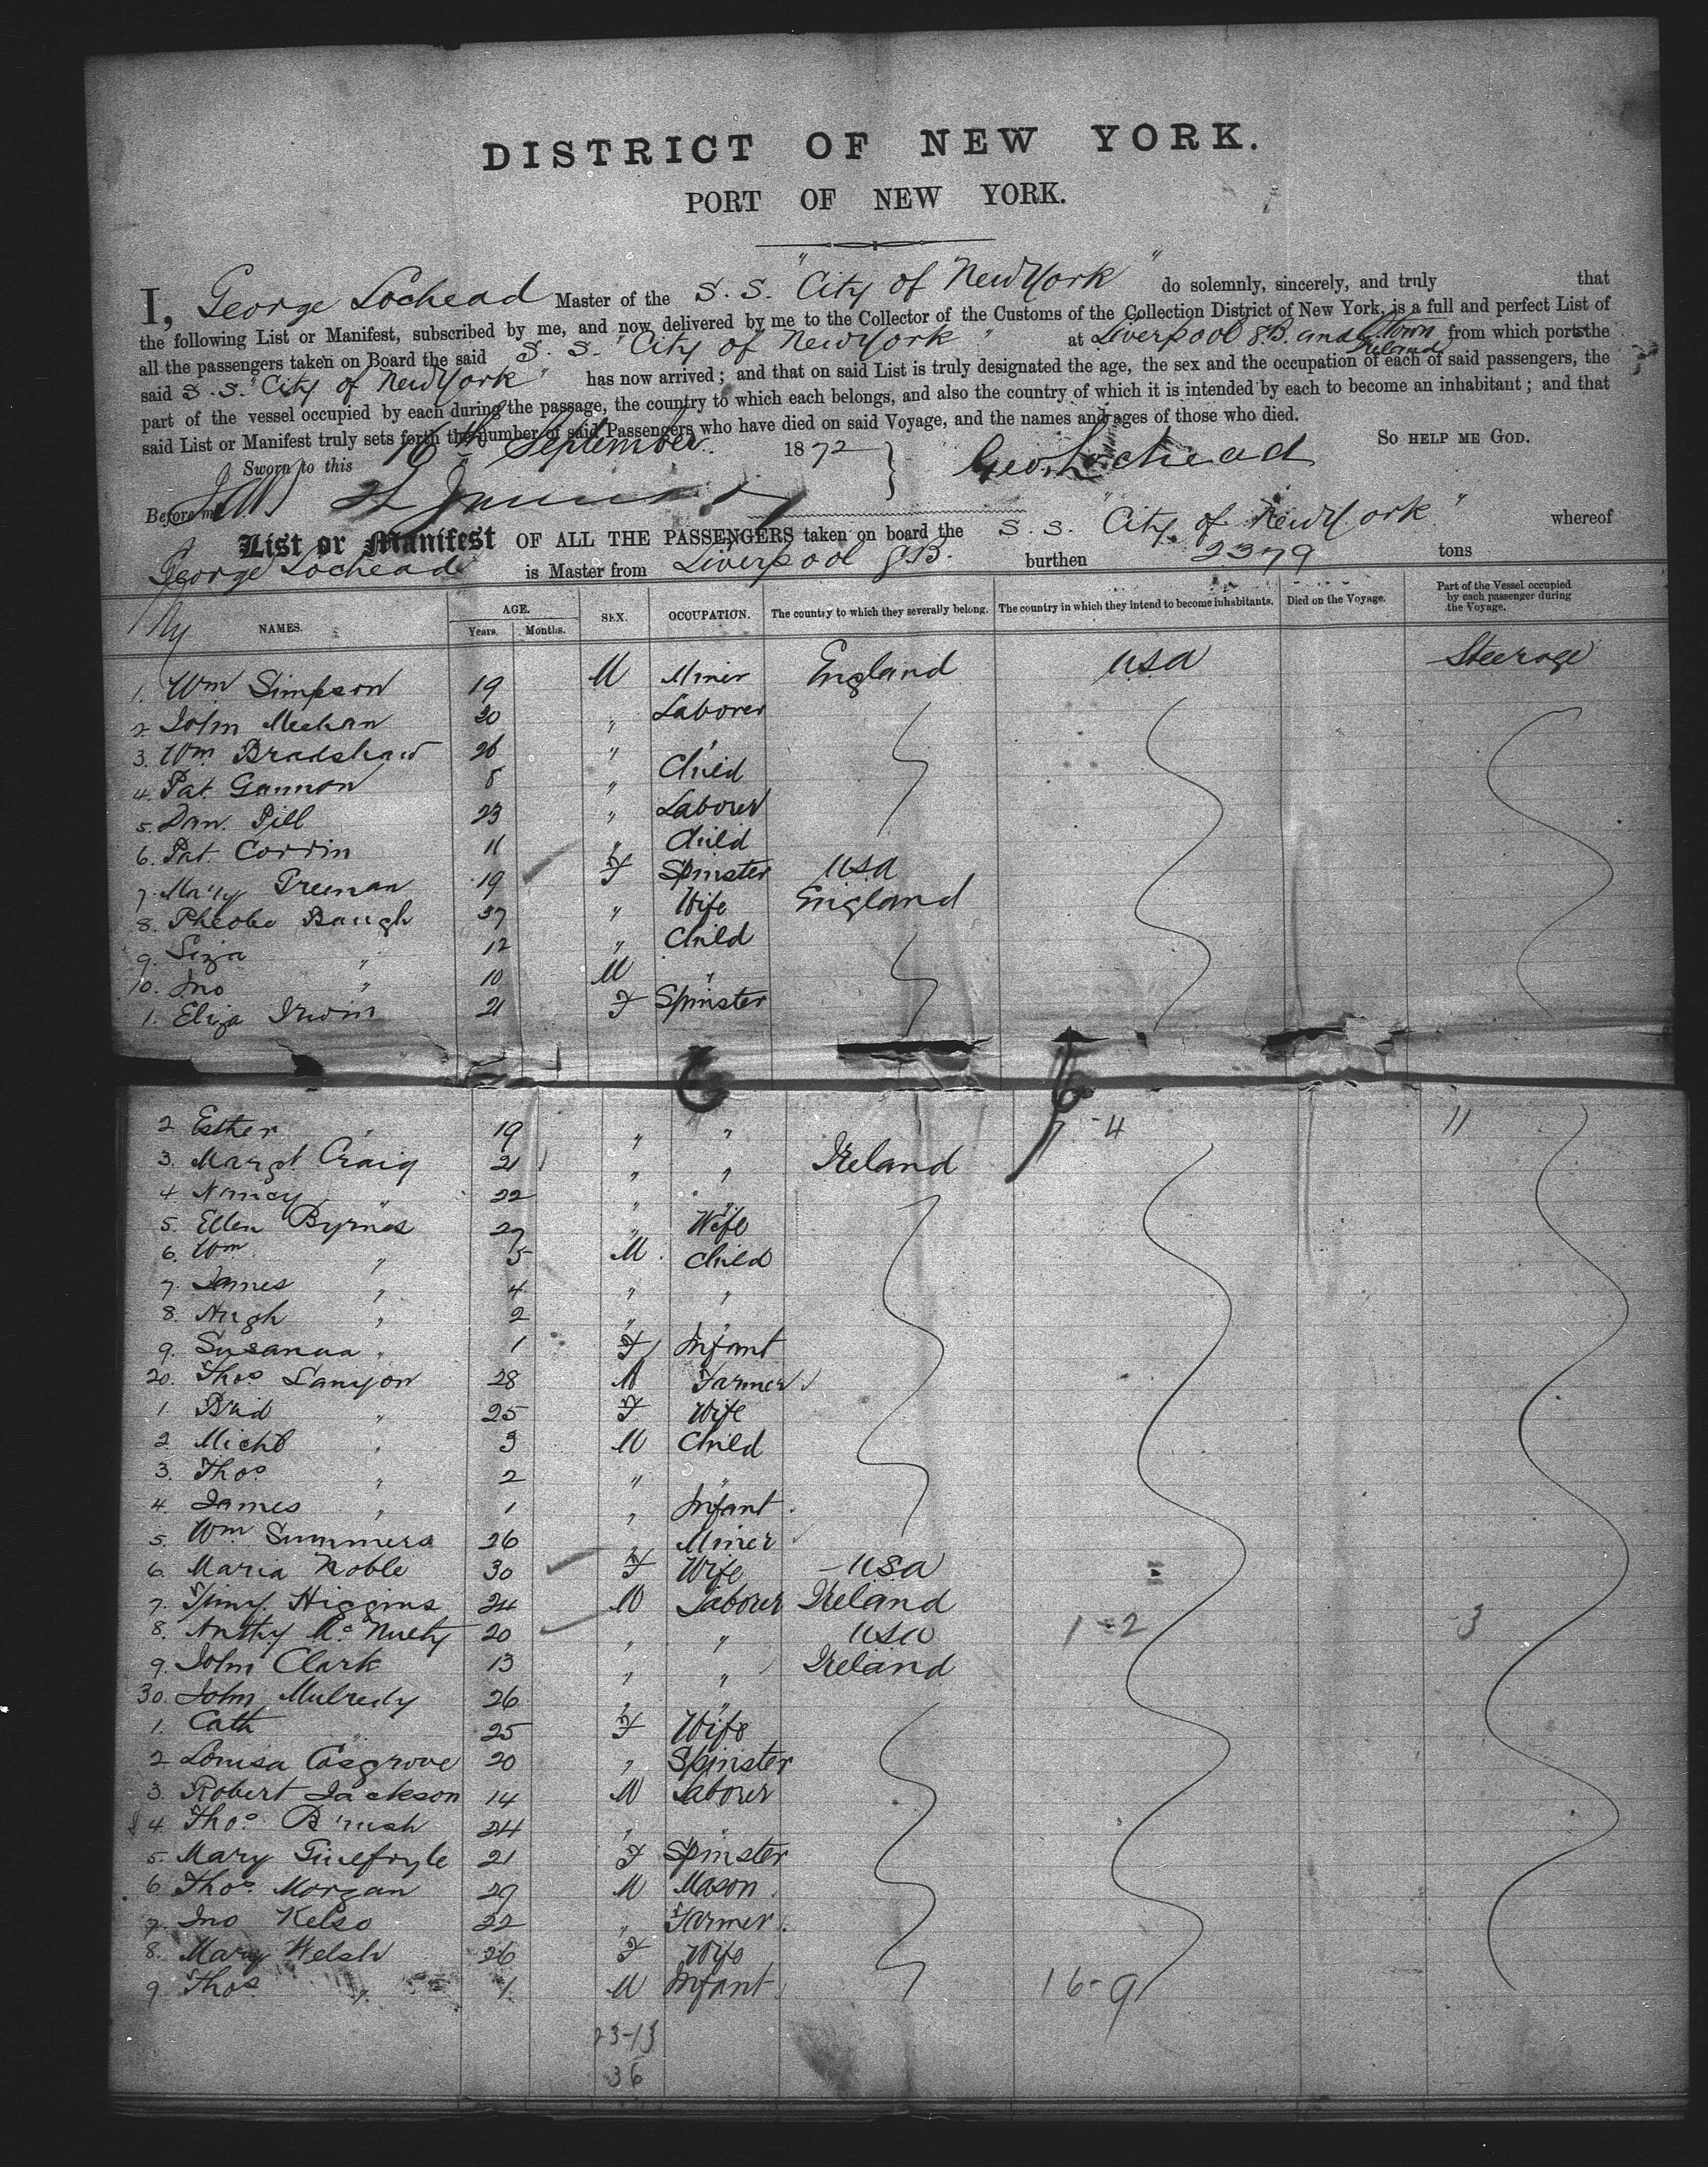 DISTRICT OF NEW YORK.
PORT OF NEW YORK.
I, George Lochead Master of the S.S. "City of New York" do solemnly, sincerely, and truly that
the following List or Manifest, subscribed by me, and now delivered by me to the Collector of the Customs of the Collection District of New York, is a full and perfect List of
all the passengers taken on Board the said S.S. "City of New York" at Liverpool G.B. and Q.Town Ireland from which ports the
said S.S. "City of New York" has now arrived; and that on said List is truly designated the age, the sex and the occupation of each of said passengers, the
part of the vessel occupied by each during the passage, the country to which each belongs, and also the country of which it is intended by each to become an inhabitant; and that
said List or Manifest truly sets forth the number of said Passengers who have died on said Voyage, and the names and ages of those who died.
Sworn to this 16th September 1872 } Geo. Lochead So help me God.
Before me
List or Manifest OF ALL THE PASSENGERS taken on board the S.S. "City of New York" whereof
George Lochead is Master from Liverpool G.B. burthen 2379 tons
NAMES. AGE. Years. Months. SEX. OCCUPATION. The country to which they severally belong. The country in which they intend to become inhabitants. Died on the Voyage. Part of the Vessel occupied by each passenger during the Voyage.
1. Wm Simpson 19 M Miner England USA Steerage
2 John Meehan 20 " Laborer
3. Wm Bradshaw 26 " "
4. Pat Gannon 8 " Child
5. Dan. Gill 23 " Laborer
6. Pat Corrin 11 " Child
7 Mary Freeman 19 F Spinster USA
8. Pheobe Baugh 37 " Wife England
9. Liza " 12 " Child
10. Jno " 10 M "
1. Eliza Irwin 21 F Spinster
2 Esther " 19 " " 7-4 11
3. Margt Craig 21 " " Ireland
4. Nancy " 22 " "
5. Ellen Byrnes 27 " Wife
6. Wm " 5 M Child
7. James " 4 " "
8. Hugh " 2 " "
9. Susanna " 1 F Infant
20. Thos Lanyon 28 M Farmer
1. Brid " 25 F Wife
2. Michl " 3 M Child
3. Thos " 2 " "
4. James " 1 " Infant
5. Wm Summers 26 " Miner
6. Maria Noble 30 F Wife USA
7. Higgins 24 M Laborer Ireland
8. Anthy 20 " " USA 1-2 3
9. John Clark 13 " " Ireland
30. John Mulredy 26 " "
1. Cath " 25 F Wife
2 Louisa Cosgrove 20 " Spinster
3. Robert Jackson 14 M Laborer
4. Thos 24 " "
5. Mary 21 F Spinster
6 Thos Morgan 29 M Mason
7. Jno Kelso 22 " Farmer
8. Mary Welsh 26 F Wife
9 Thos " 1 M Infant 16-9
23-13
36